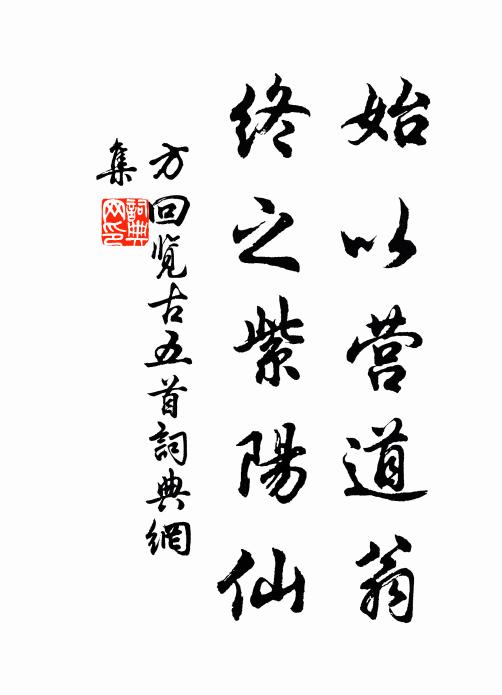 始以营道翁
终之紫陽仙
方回览古五首詞典網
集
詞典
网印